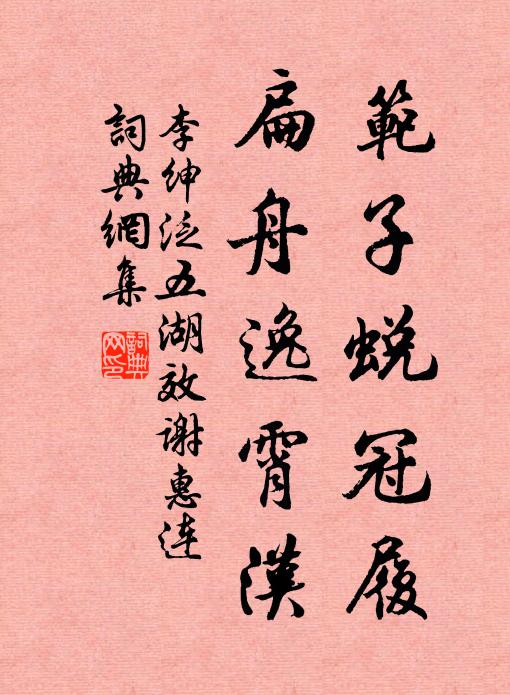 範子蛻冠履
扁舟逸霄漢
李紳泛五湖效謝惠連
詞典網集
詞典網印